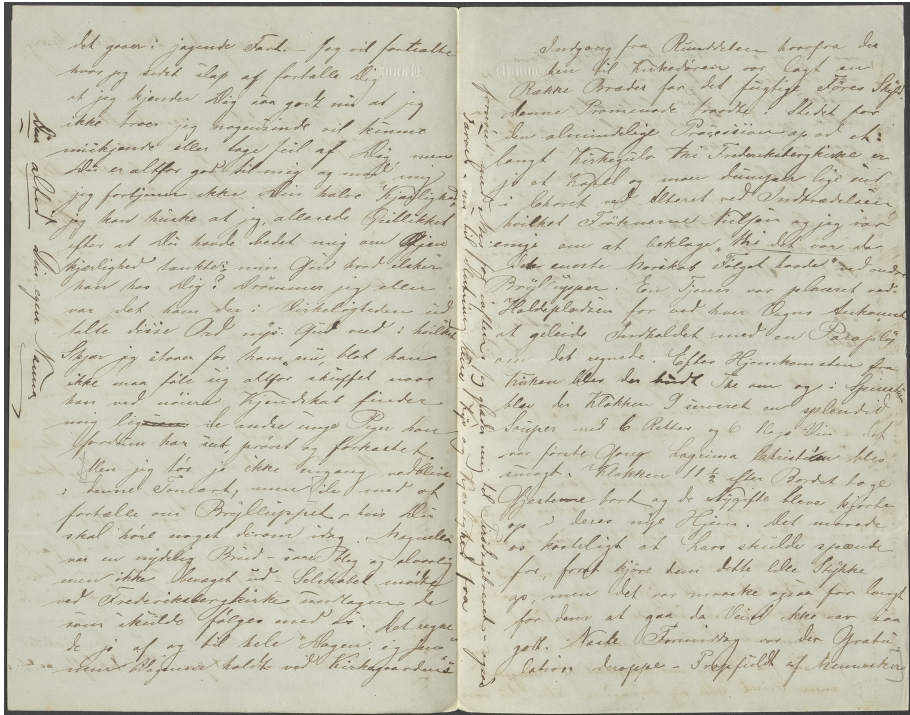 det gaaer i jagende Fart. - Jeg vil fortælle
hvor jeg sidst slap af fortælle Dig
at jeg kjender Dig saa godt nu at jeg
ikke troer jeg nogensinde vil kunne
miskjende eller tage feil af Dig, men
Du er altfor god til mig og mod mig
jeg fortjener ikke Din halve Kjærlighed
jeg kan huske at jeg allerede Øieblikket
efter at Du havde bedet mig om Gjen
kjærlighed tænkte: min Gud hvad elsker
han hos Dig? Drømmer jeg eller
var det ham der i Virkeligheden ud
talte disse Ord nys. Gud ved i hvilket
Skjær jeg staaer for ham nu, blot han
ikke maa føle sig altfor skuffet naar
han ved nøiere Kjendskab finder
mig lig de andre unge Piger han
forelden har seet, prøvet og forkastet.
Men jeg tør jo ikke engang vedblive
i denne Toneart, men ile med at
fortælle om Brylluppet, hvis Du
skal høre noget derom idag.
var en nydelig Brud - saae bleg og alvorlig
men ikke bevæget ud - Selskabet mødte
ved Frederiksbergkirke undtagen de
som skulde følges med os. Det regne
de jo af og til hele Dagen,
men Vognene holdte ved Kirkegaardens
Din altid Din egen Nanna
Indgang fra Runddelen hvorfra der
hen til Kirkedøren var lagt en
Række Brædder for det fugtige Føres Skyld.
Denne Promenade traadte i Stedet for
den almindelige Procession op ad et
langt Kirkegulv thi Frederiksbergkirke er
jo et Kapel og man dumper lige ind
i Choret ved Alteret ved Indtrædelsen
hvilket Frøknerne Nielsen og jeg var
enige om at beklage, "thi det var da
den eneste Morskab Følget havde" ved andre
Brylluper. En Tjener var placeret ved
Holdepladsen for ved hver Vogns Ankomst
at geleide Indholdet med en Paraply
om det regnede. Efter Hjemkomsten fra
Kirken blev der budt The om og i Spisestuen
blev der Klokken 9 serveret en splendid
Souper med 6 Retter og 6 Slags Vin - det
var første Gang Lagrima Christi blev
smagt. Klokken 11½ efter Bordet toge
Gjæsterne bort og de Nygifte bleve kjørte
op i deres nye Hjem. Det morede
os kosteligt at Lars skulde spænde
for, for at kjøre dem dette lille Stykke
op, men det var maaske ogsaa for langt
for dem at gaa da Veiret ikke var saa
godt. Næste Formiddag var der Gratu
lation deroppe - Propfuldt af Mennesker